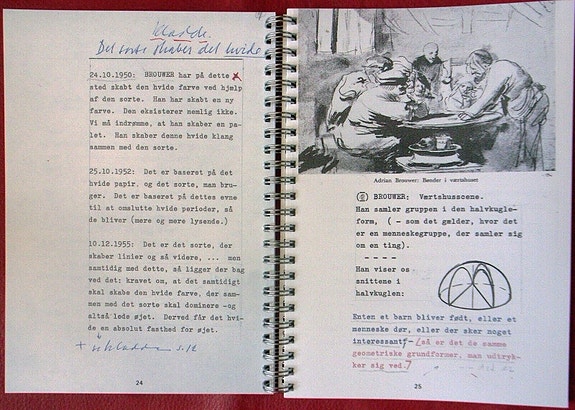 kladde.
Det sorte skaber det hvide
24.10.1950: BROUWER har på dette
sted skabt den hvide farve ved hjælp
af den sorte. Han har skabt en ny
farve. Den eksisterer nemlig ikke.
Vi må indrømme, at han skaber en pa-
let. Han skaber denne hvide klang
sammen med den sorte.
25.10.1952: Det er baseret på det
hvide papir, og det sorte, man bru-
ger. Det er baseret på dettes evne
til at omslutte hvide perioder, så
de bliver (mere og mere lysende.)
10.12.1955: Det er det sorte, der
skaber linier og så videre, ... men
samtidig med dette, så ligger der bag
ved det: kravet om, at det samtidigt
skal skabe den hvide farve, der sam-
men med det sorte skal dominere -og
altså lede øjet. Derved får det hvi-
de en absolut fasthed for øjet.
+ s. 12
24
Adrian Brouwer: Bønder i værtshuset
BROUWER: Værtshusscene.
Han samler gruppen i den halvkugle-
form, ( - som det gælder, hvor det
er en menneskegruppe, der samler sig
om en ting).
- - - -
Han viser os
snittene i
halvkuglen:
Enten et barn bliver født, eller et
menneske dør, eller der sker noget
interessant - (så er det de samme
geometriske grundformer, man udtryk-
ker sig ved.)
25